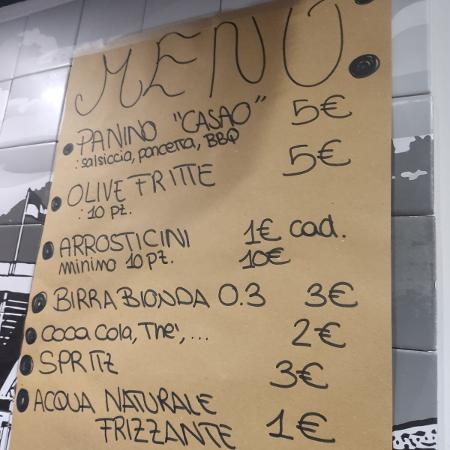 MENÙ
PANINO "CASAO" 5€
: salsiccia, pancetta, BBQ
OLIVE FRITTE 5€
: 10 pz.
ARROSTICINI 1€ cad.
minimo 10 pz. 10€
BIRRA BIONDA 0.3 3€
COCA COLA, THE', ... 2€
SPRITZ 3€
ACQUA NATURALE
FRIZZANTE 1€